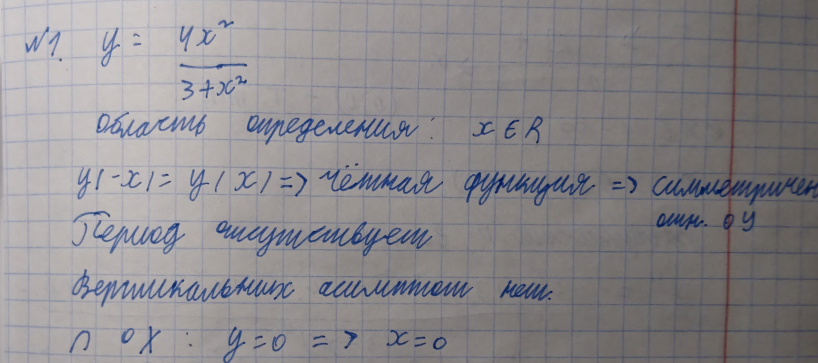 №1. y = 4x² / 3+x²
область определения: x ∈ R
y(-x) = y(x) => чётная функция => симметричен
отн. оy
Период отсутствует
Вертикальных асимптот нет.
∩ OX : y=0 => x=0